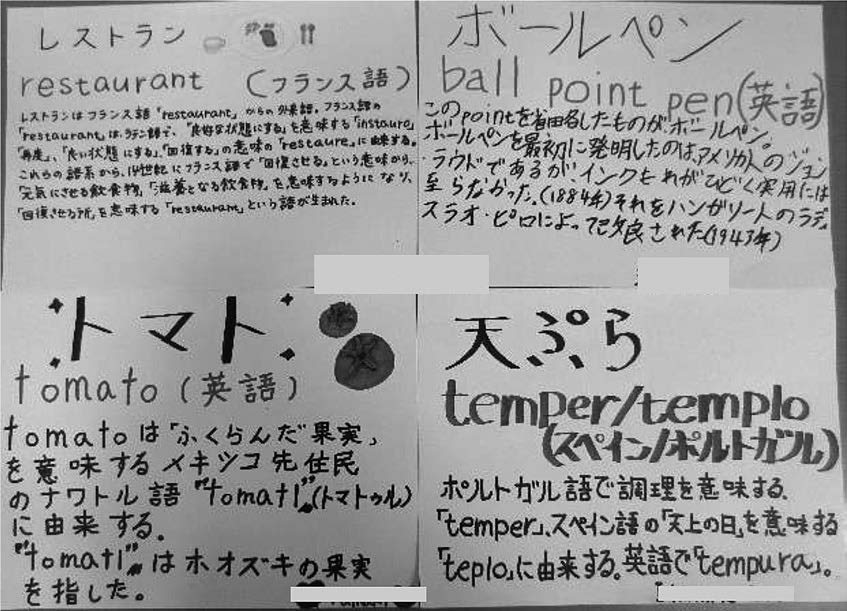 レストラン
restaurant (フランス語)
レストランはフランス語「restaurant」からの外来語。フランス語の
「restaurant」は、ラテン語で、「良好な状態にする」を意味する「instauro」
「再度」、「良い状態にする」、「回復する」の意味の「restaure」に由来する。
これらの語系から、14世紀にフランス語で「回復させる」という意味から、
「元気にさせる飲食物」、「滋養となる飲食物」を意味するようになり、
「回復させる所」を意味する「restaurant」という語が生まれた。
ボールペン
ball point pen(英語)
このpointを省略したものが、ボールペン。
ボールペンを最初に発明したのは、アメリカ人のジョン
・ラウドであるがインクもれがひどく実用には
至らなかった。(1884年)それをハンガリー人のラディ
スラオ・ピロによって改良された(1943年)
トマト
tomato (英語)
tomatoは「ふくらんだ果実」
を意味するメキシコ先住民
のナワトル語"tomatl"(トマトゥル)
に由来する。
"tomatl"はホオズキの果実
を指した。
天ぷら
temper/templo
(スペイン/ポルトガル)
ポルトガル語で調理を意味する、
「temper」、スペイン語の「天上の日」を意味する
「teplo」に由来する。英語で「tempura」。